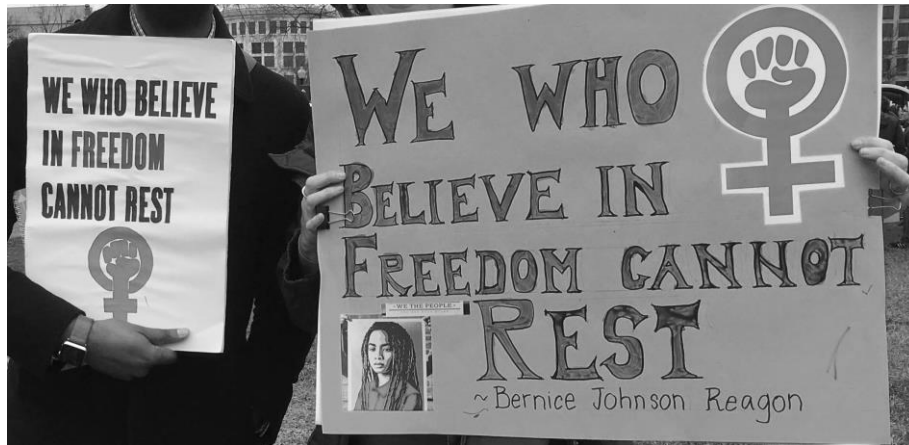 WE WHO BELIEVE
IN FREEDOM
CANNOT REST
WE WHO
BELIEVE IN
FREEDOM CANNOT
-WE THE PEOPLE-
REST
~ Bernice Johnson Reagon